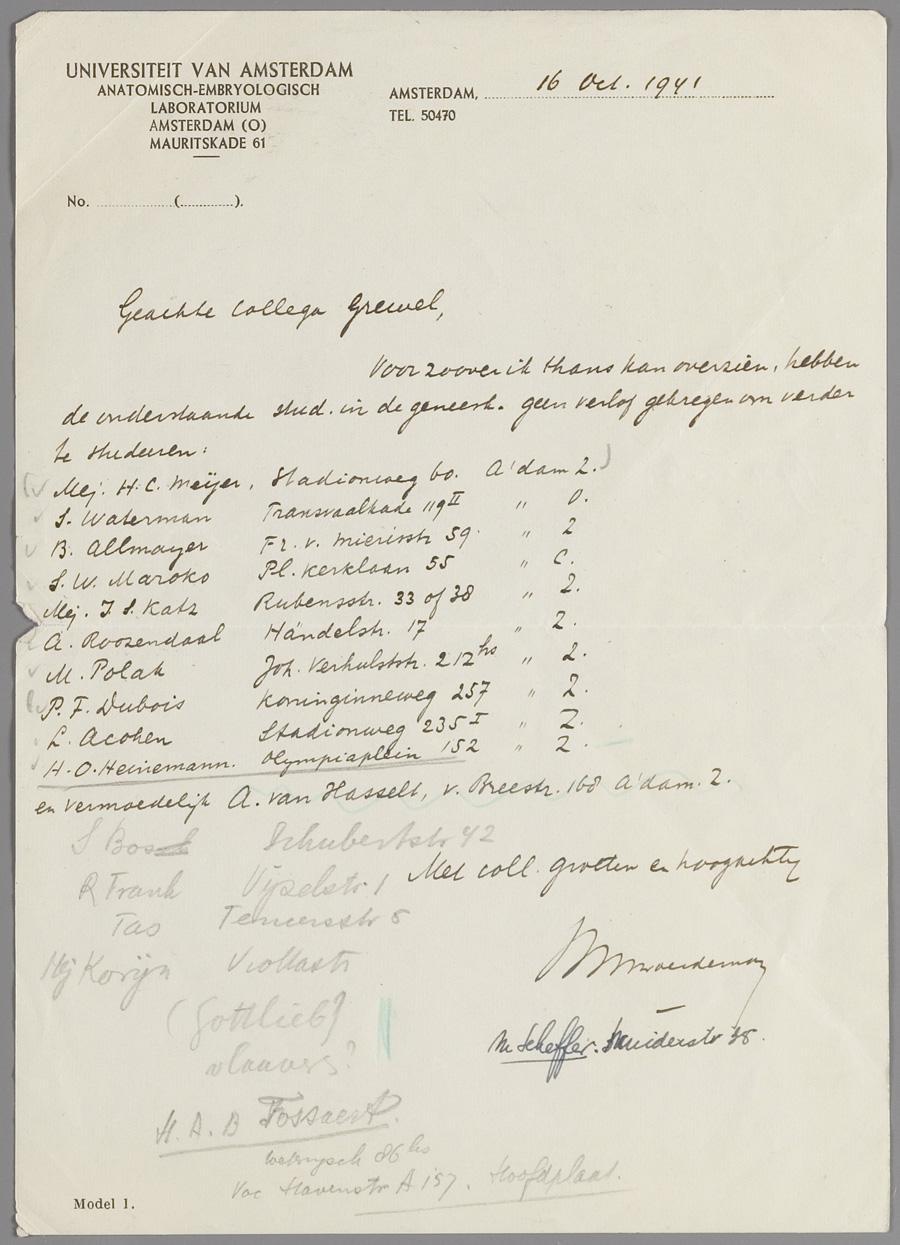 UNIVERSITEIT VAN AMSTERDAM
ANATOMISCH-EMBRYOLOGISCH
LABORATORIUM
AMSTERDAM (O)
MAURITSKADE 61
AMSTERDAM, 16 Oct. 1941
TEL. 50470
No. (          ).
Geachte collega Grewel,
Voor zoover ik thans kan overzien, hebben
de onderstaande stud. in de geneesk. geen verlof gekregen om verder
te studeeren:
Mej. H. C. Meijer, Stadionweg 60. A'dam Z.
S. Waterman Transvaalkade 119 II " O.
B. Allmayer Fr. v. Mierisstr 59. " Z
S. W. Maroko Pl. Kerklaan 55 " C.
Mej. J. S. Katz Rubensstr. 33 of 38 " Z.
A. Roozendaal Händelstr. 17 " Z.
M. Polak Joh. Verhulststr. 212 hs " Z.
P. F. Dubois Koninginneweg 257 " Z.
L. Acohen Stadionweg 235 I " Z.
H. O. Heinemann. Olympiaplein 152 " Z.
en vermoedelijk A. van Hasselt, v. Breestr. 168 A'dam. Z.
S Bos Schubertstr 42
R Frank Vijzelstr 1
Met coll. groeten en hoogachting
Tas Teniersstr 5
Mej Korijn Viottastr
MWWoerdeman
(Gottlieb?)
M Scheffer. Muiderstr 38.
vlaavers?
H. A. B Fossaert.
86 hs
Havenstr A 157. Hoofdplaat.
Model 1.